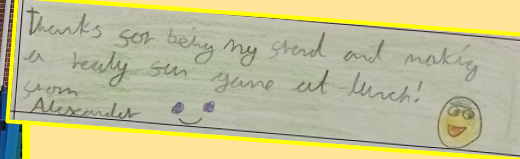 Thanks for being my frend and making
a realy fun game at lunch!
from
Alexander